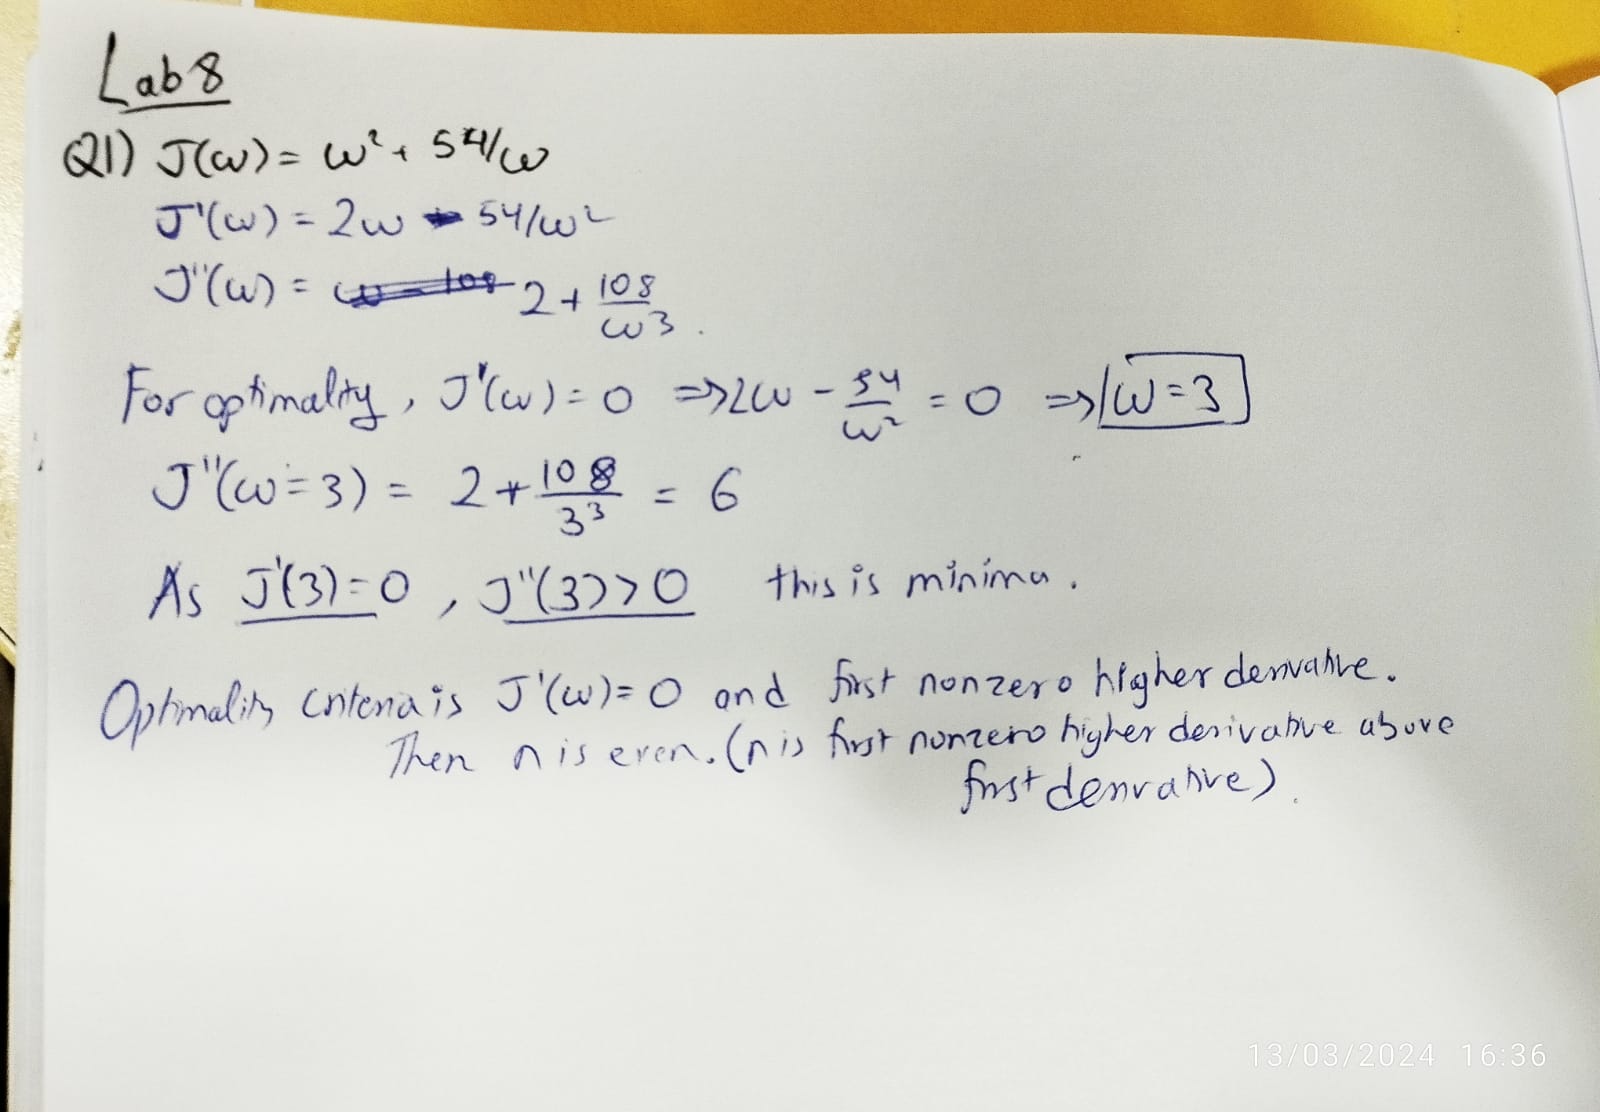 Lab 8
Q1) J(ω) = ω² + 54/ω
J'(ω) = 2ω - 54/ω²
J''(ω) = 2 + 108/ω3.
For optimality, J'(ω) = 0 ⇒ 2ω - 54/ω² = 0 ⇒ ω = 3
J''(ω=3) = 2 + 108/3³ = 6
As J'(3) = 0, J''(3) > 0 this is minima.
Optimality criteria is J'(ω) = 0 and first nonzero higher derivative.
Then n is even. (n is first nonzero higher derivative above
first derivative).
13/03/2024 16:36